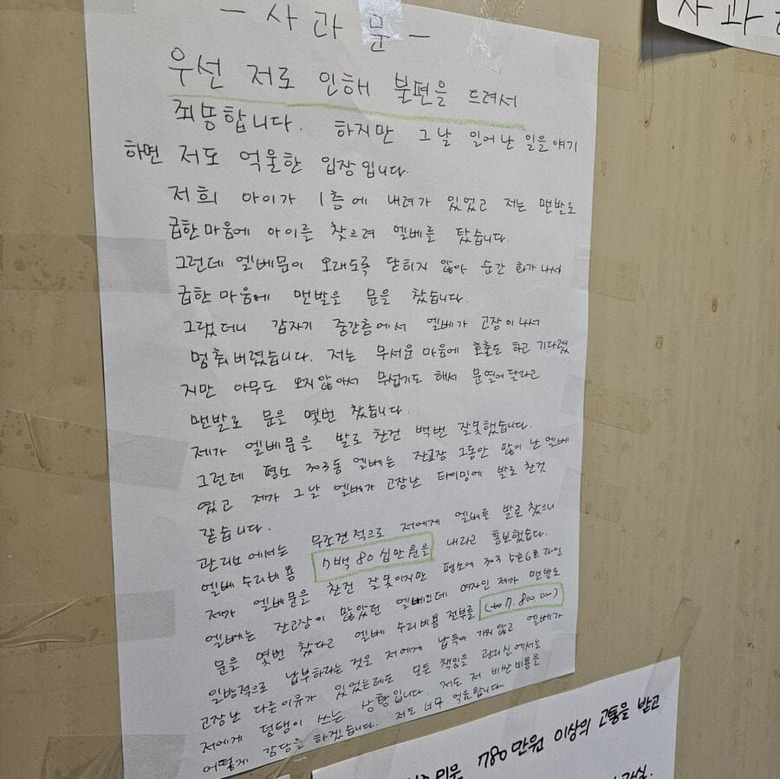 - 사 과 문 -
우선 저로 인해 불편을 드려서
죄송합니다. 하지만 그날 일어난 일을 얘기
하면 저도 억울한 입장입니다.
저희 아이가 1층에 내려가 있었고 저는 맨발로
급한 마음에 아이를 찾으려 엘베를 탔습니다.
그런데 엘베문이 오래도록 닫히지 않아 순간 화가 나서
급한 마음에 맨발로 문을 찼습니다.
그랬더니 갑자기 중간층에서 엘베가 고장이 나서
멈춰버렸습니다. 저는 무서운 마음에 호출도 하고 기다렸
지만 아무도 오지 않아서 무섭기도 해서 문열어달라고
맨발로 문을 몇번 찼습니다.
제가 엘베문을 발로 찬건 백번 잘못했습니다.
그런데 평소 303동 엘베는 잔고장 그동안 많이 난 엘베
였고 제가 그날 엘베가 고장난 타이밍에 발로 찬것
같습니다.
관리소에서는 무조건적으로 저에게 엘베를 발로 찼으니
엘베 수리비용 7백80십만원을 내라고 통보했습니다.
제가 엘베문을 찬건 잘못이지만 평소에 303 5호6호 라인
엘베는 잔고장이 많았던 엘베인데 여자인 제가 맨발로
문을 몇번 찼다고 엘베 수리비용 전부를 (₩7.800.000)
일방적으로 납부하라는 것은 저에게 납득이 가지 않고 엘베가
고장난 다른이유가 있었는데도 모든 책임을 관리실에서는
저에게 덤탱이 쓰는 상황입니다. 저도 저 비싼비용을
어떻게 감당을 하겠습니다. 저도 너무 억울합니다
사과
780만원 이상의 고통을 받고